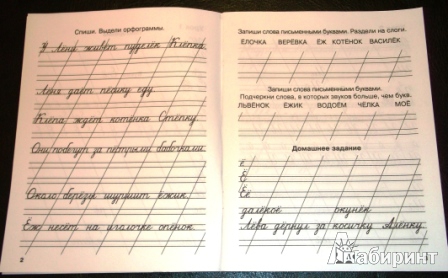 Спиши. Выдели орфограммы.
У Лёни живёт пуделёк Клёпка.
Лёня даёт пёсику еду.
Клёпа ждёт котёнка Стёпку.
Они побегут за пёстрыми бабочками.
Около берёзы шуршит ёжик.
Ёж несёт на иголочке опёнок.
2
Запиши слова письменными буквами. Раздели на слоги.
ЁЛОЧКА ВЕРЁВКА ЁЖ КОТЁНОК ВАСИЛЁК
Запиши слова письменными буквами.
Подчеркни слова, в которых звуков больше, чем букв.
ЛЬВЁНОК ЁЖИК ВОДОЁМ ЧЁЛКА МОЁ
Домашнее задание
Ё
ё
Её
далёкое окунёк
Лёва дёрнул за косичку Алёнку.
Лабиринт